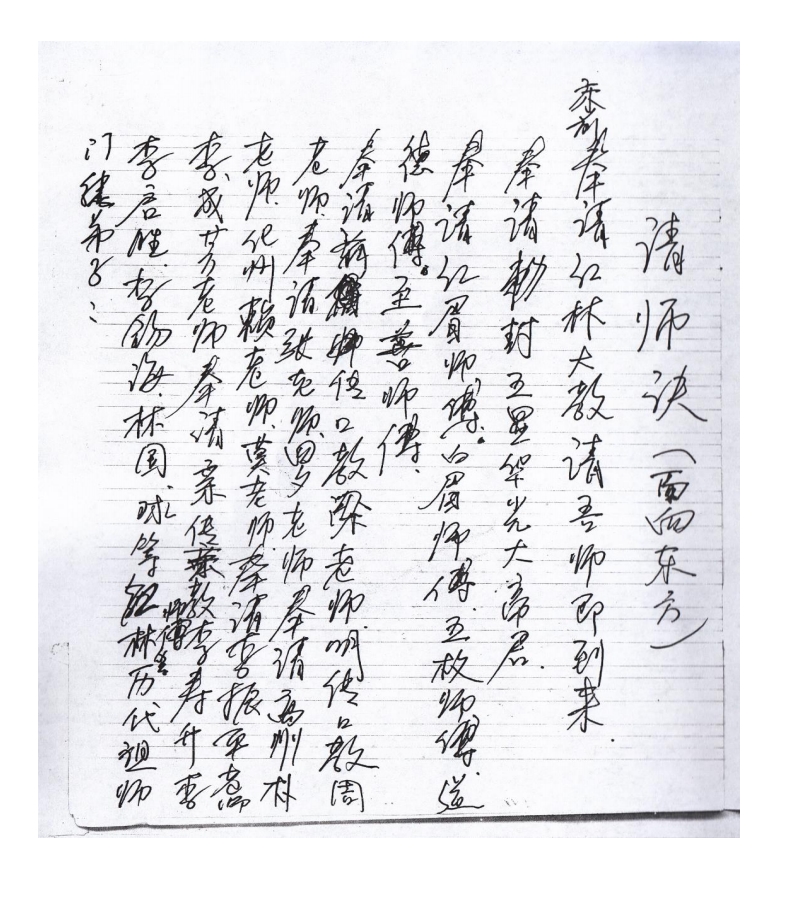 请师诀(面向东方)
奉请红林大教请吾师即到来.
奉请勅封五显华光大帝君.
奉请红眉师傅。白眉师傅.五枚师傅.道
德师傅。至善师傅.
奉请 师传口教 老师.明传口教周
老师.奉请张老师.罗老师奉请高州林
老师.化州赖老师.莫老师.奉请李振平
李成芳老师奉请亲传教师傅李寿升李
李启胜.李锡海.林国球等红林历代祖师
门徒弟子: